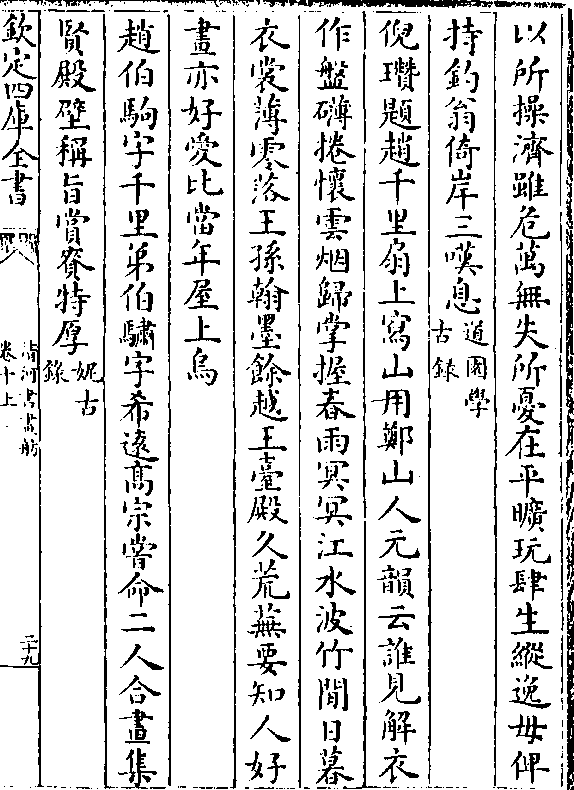 以所操濟雖危萬無失所憂在平曠玩肆生縱逸毋俾
持釣翁倚岸三嘆息道園學古録
倪瓚題趙千里扇上寫山用鄭山人元韻云誰見解衣
作盤礴捲懷雲烟歸掌握春雨冥冥江水波竹間日暮
衣裳薄零落王孫翰墨餘越王臺殿久荒蕪要知人好
畫亦好愛比當年屋上烏
趙伯駒字千里弟伯驌字希遠髙宗嘗命二人合畫集
賢殿壁稱旨賞賚特厚妮古録
欽定四庫全書
清河書畫舫
卷十上
二十九